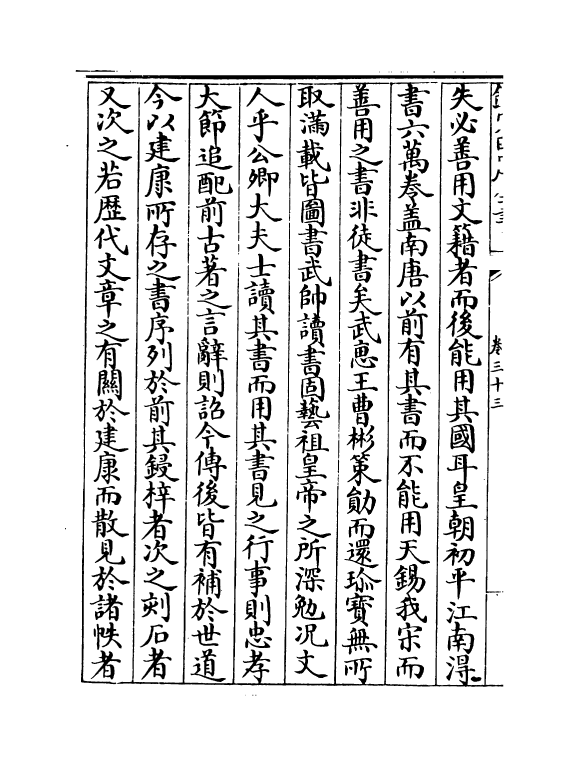 卷三十三
失必善用文籍者而後能用其國耳皇朝初平江南得
書六萬卷盖南唐以前有其書而不能用天錫我宋而
善用之書非徒書矣武惠王曹彬策勛而還珍寶無所
取滿載皆圖書武帥讀書固藝祖皇帝之所深勉况丈
人乎公卿大夫士讀其書而用其書見之行事則忠孝
大節追配前古著之言辭則詔今傳後皆有補於世道
今以建康所存之書序列於前其鋟梓者次之刻石者
又次之若歷代文章之有關於建康而散見於諸帙者